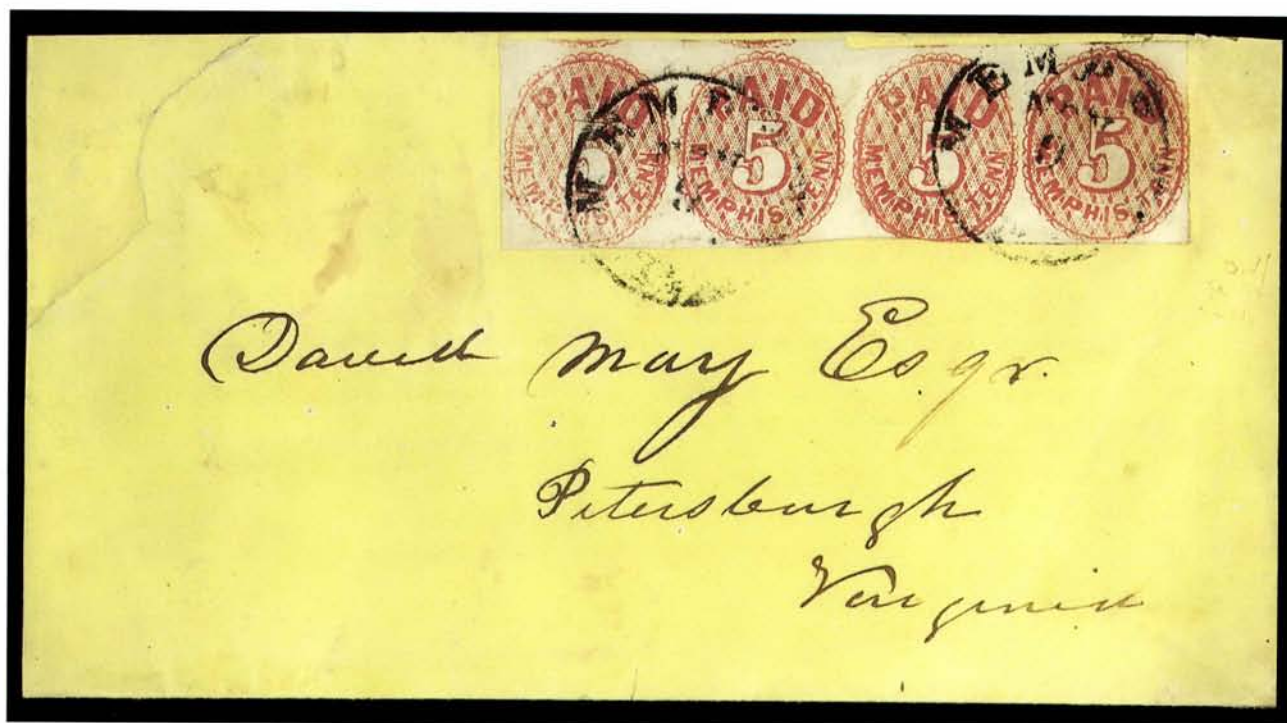 PAID 5 MEMPHIS, TENN PAID 5 MEMPHIS, TENN PAID 5 MEMPHIS, TENN PAID 5 MEMPHIS, TENN
David May Esqr.
Petersburgh
Virginia